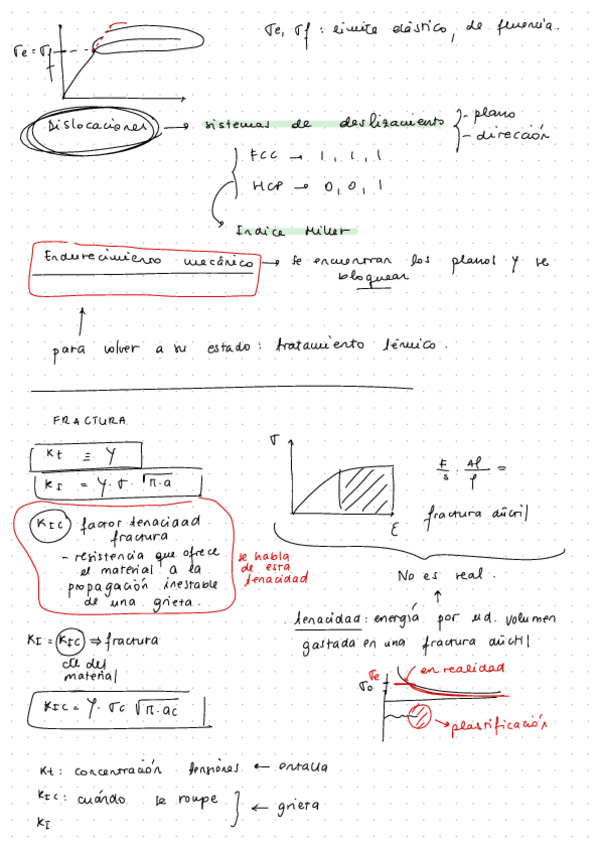 σe, σf : limite elástico, de fluencia.
σe = σf
Dislocaciones → sistemas de deslizamiento { - plano
- dirección
FCC → 1, 1, 1
HCP → 0, 0, 1
Indice Miller
Endurecimiento mecánico → se encuentran los planos y se
bloquear
para volver a su estado : tratamiento térmico.
FRACTURA
Kt ≡ Y
KI = Y · σ · √π·a
KIC factor tenacidad
fractura
- resistencia que ofrece
el material a la
propagación inestable
de una grieta.
se habla
de esta
tenacidad
σ
ε
F/s · Δl/l =
fractura dúctil
No es real.
tenacidad : energía por ud. volumen
gastada en una fractura dúctil
KI = KIC ⇒ fractura
cte del
material
KIC = Y · σc √π·ac
σe
σo
en realidad
plastificación
Kt : concentración tensiones ← entalla
KIC : cuándo se rompe
KI
← grieta